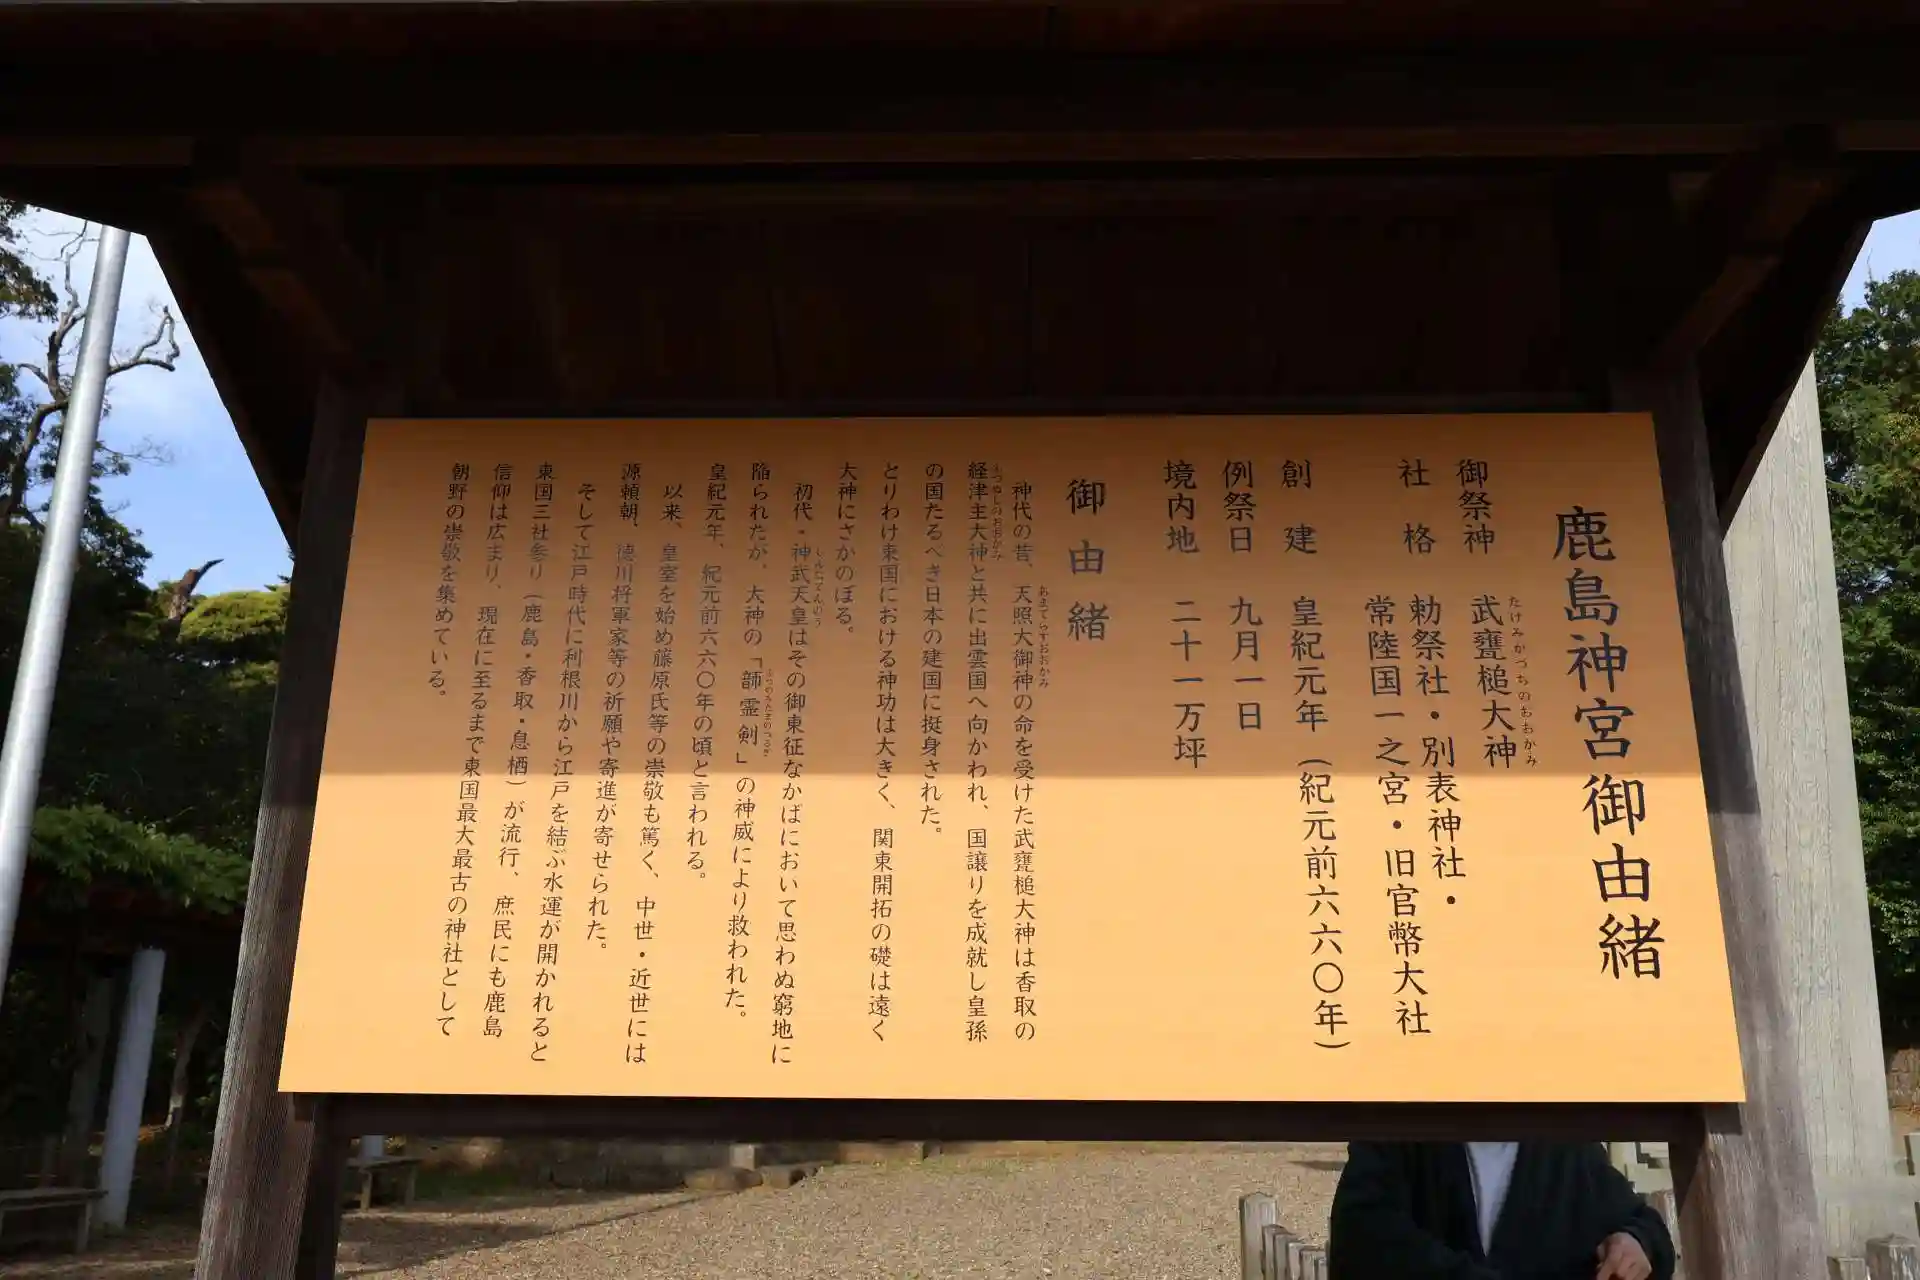 鹿島神宮御由緒
御祭神　武甕槌大神
たけみかづちのおおかみ
社　格　勅祭社・別表神社・
常陸国一之宮・旧官幣大社
創　建　皇紀元年（紀元前六六〇年）
例祭日　九月一日
境内地　二十一万坪
御由緒
神代の昔、天照大御神の命を受けた武甕槌大神は香取の
あまてらすおおみかみ
経津主大神と共に出雲国へ向かわれ、国譲りを成就し皇孫
ふつぬしのおおかみ
の国たるべき日本の建国に挺身された。
とりわけ東国における神功は大きく、関東開拓の礎は遠く
大神にさかのぼる。
初代・神武天皇はその御東征なかばにおいて思わぬ窮地に
じんむてんのう
陥られたが、大神の「韴霊剣」の神威により救われた。
ふつのみたまのつるぎ
皇紀元年、紀元前六六〇年の頃と言われる。
以来、皇室を始め藤原氏等の崇敬も篤く、中世・近世には
源頼朝、徳川将軍家等の祈願や寄進が寄せられた。
そして江戸時代に利根川から江戸を結ぶ水運が開かれると
東国三社参り（鹿島・香取・息栖）が流行、庶民にも鹿島
信仰は広まり、現在に至るまで東国最大最古の神社として
朝野の崇敬を集めている。